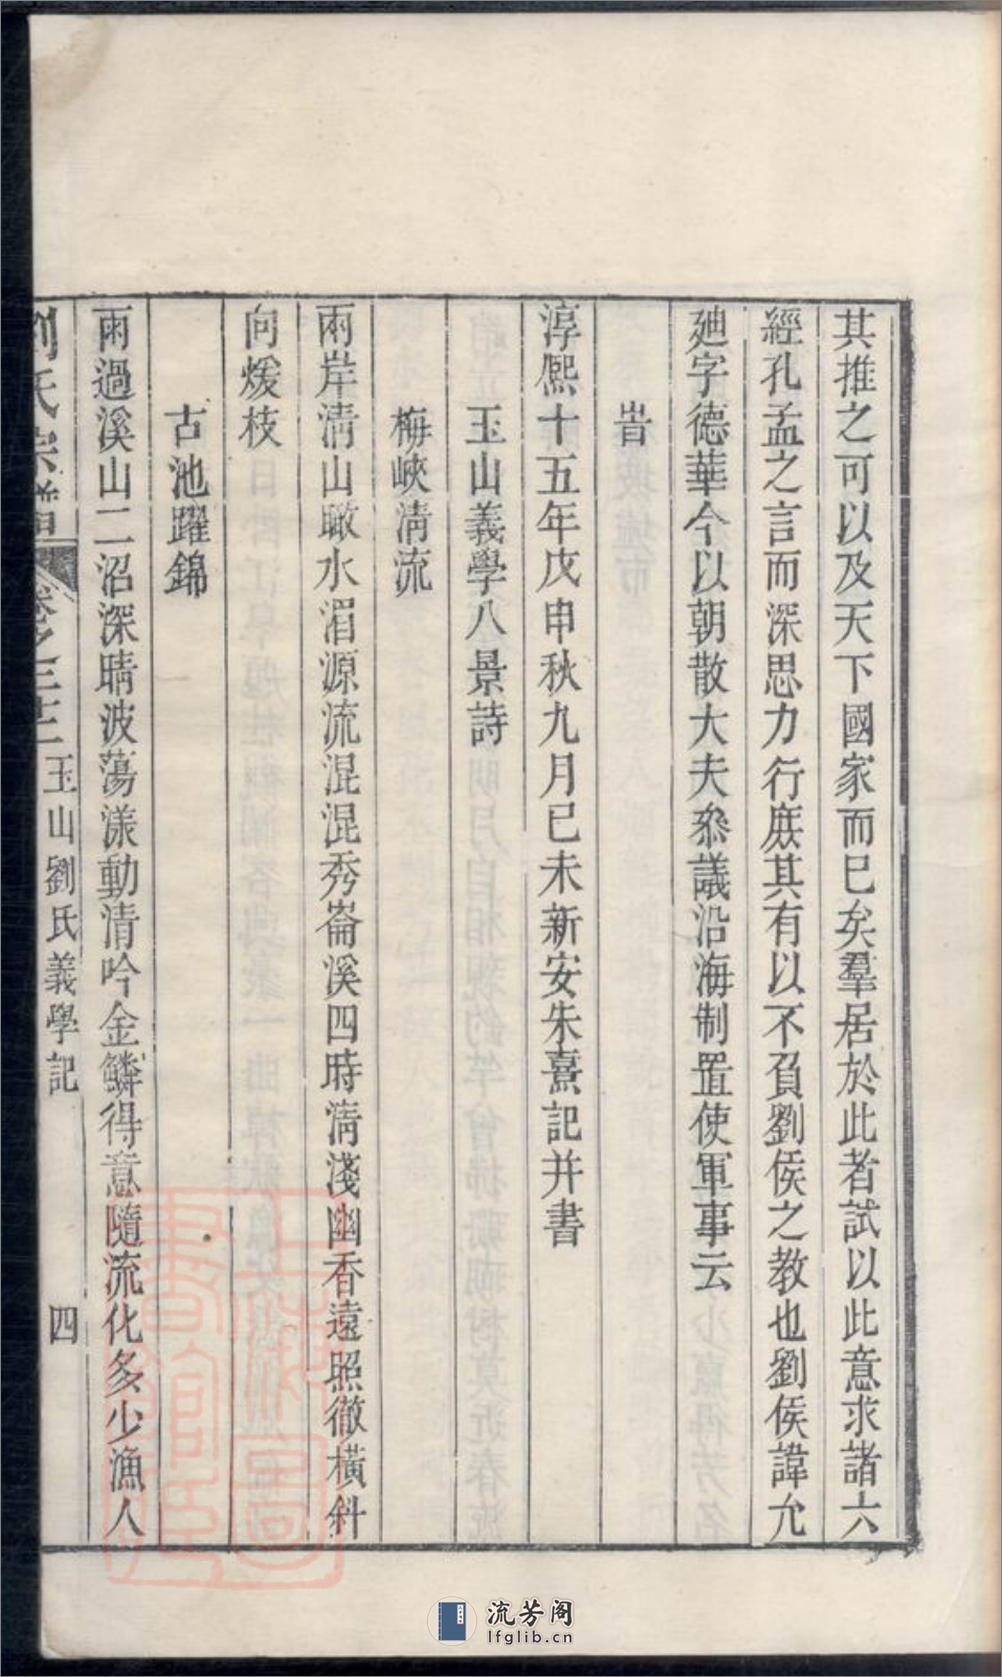 其推之可以及天下國家而已矣羣居於此者試以此意求諸六
經孔孟之言而深思力行庶其有以不負劉侯之教也劉侯諱允
廸字德華今以朝散大夫叅議沿海制置使軍事云
旹
淳熙十五年戊申秋九月已未新安朱熹記并書
玉山義學八景詩
梅峽淸流
兩岸淸山瞰水湄源流混混秀崙溪四時淸淺幽香遠照徹橫斜
向煖枝
古池躍錦
雨過溪山二沼深晴波蕩漾動清吟金鱗得意隨流化多少漁人
劉氏宗譜 卷之三十二 玉山劉氏義學記 四
流芳阁
lfglib.cn